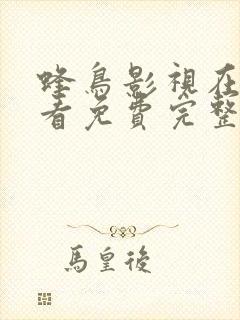 蜂鳥影視在
看免費完整
馬皇後